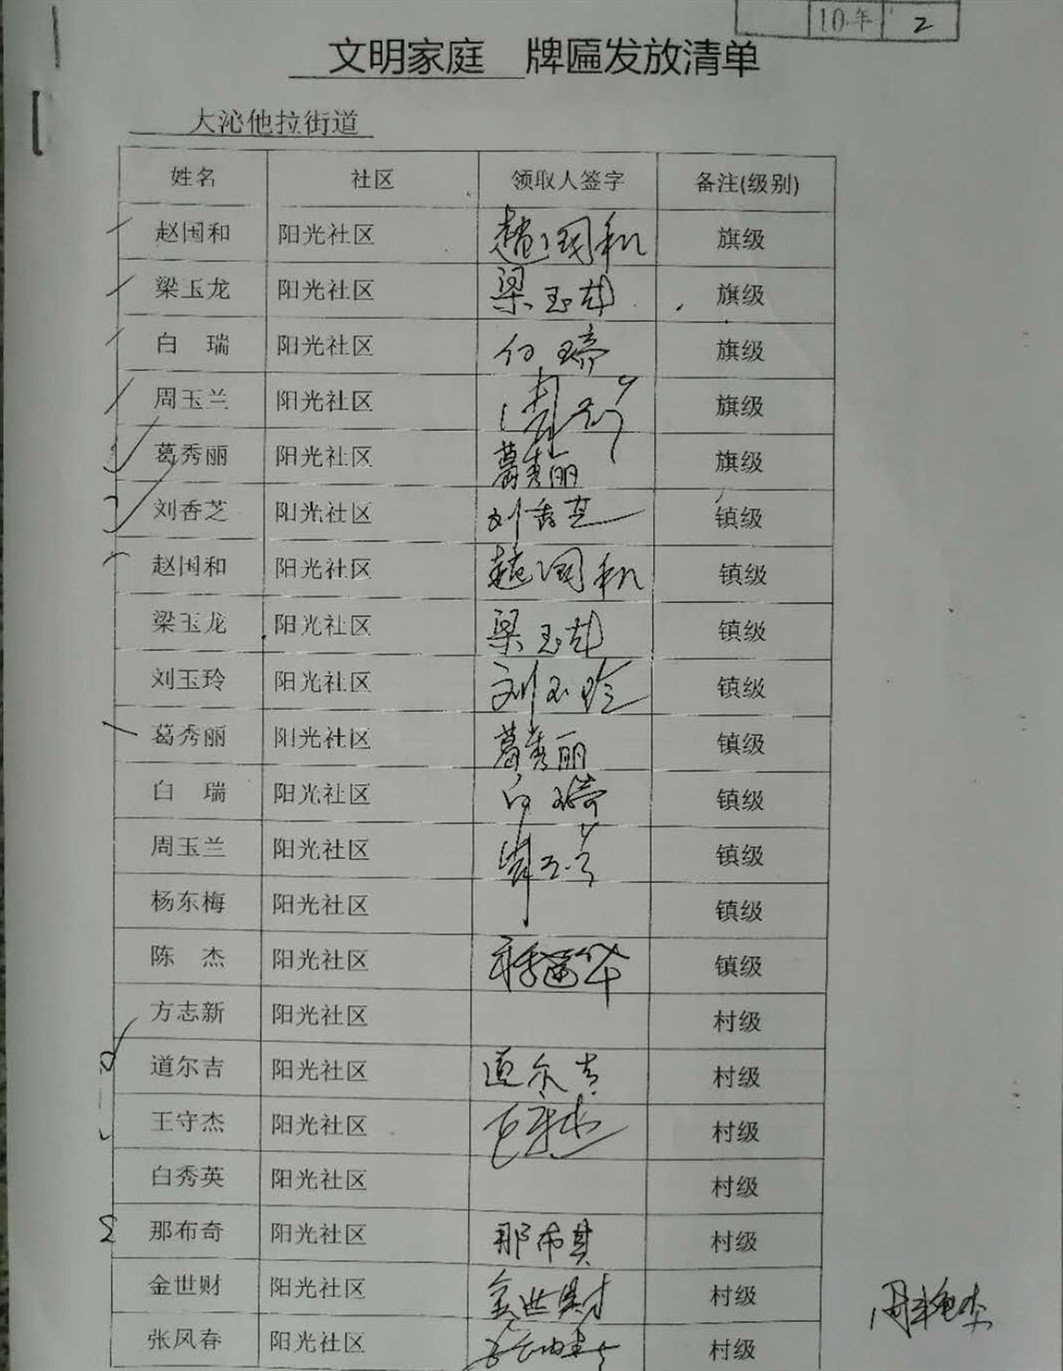 10年 2
文明家庭 牌匾发放清单
大沁他拉街道
姓名 社区 领取人签字 备注(级别)
赵国和 阳光社区 赵国和 旗级
梁玉龙 阳光社区 梁玉龙 旗级
白 瑞 阳光社区 白瑞 旗级
周玉兰 阳光社区 旗级
葛秀丽 阳光社区 葛秀丽 旗级
刘香芝 阳光社区 刘香芝 镇级
赵国和 阳光社区 赵国和 镇级
梁玉龙 阳光社区 梁玉龙 镇级
刘玉玲 阳光社区 刘玉玲 镇级
葛秀丽 阳光社区 葛秀丽 镇级
白 瑞 阳光社区 白瑞 镇级
周玉兰 阳光社区 周玉兰 镇级
杨东梅 阳光社区 镇级
陈 杰 阳光社区 镇级
方志新 阳光社区 村级
道尔吉 阳光社区 道尔吉 村级
王守杰 阳光社区 王守杰 村级
白秀英 阳光社区 村级
那布奇 阳光社区 那布其 村级
金世财 阳光社区 金世财 村级
张凤春 阳光社区 村级